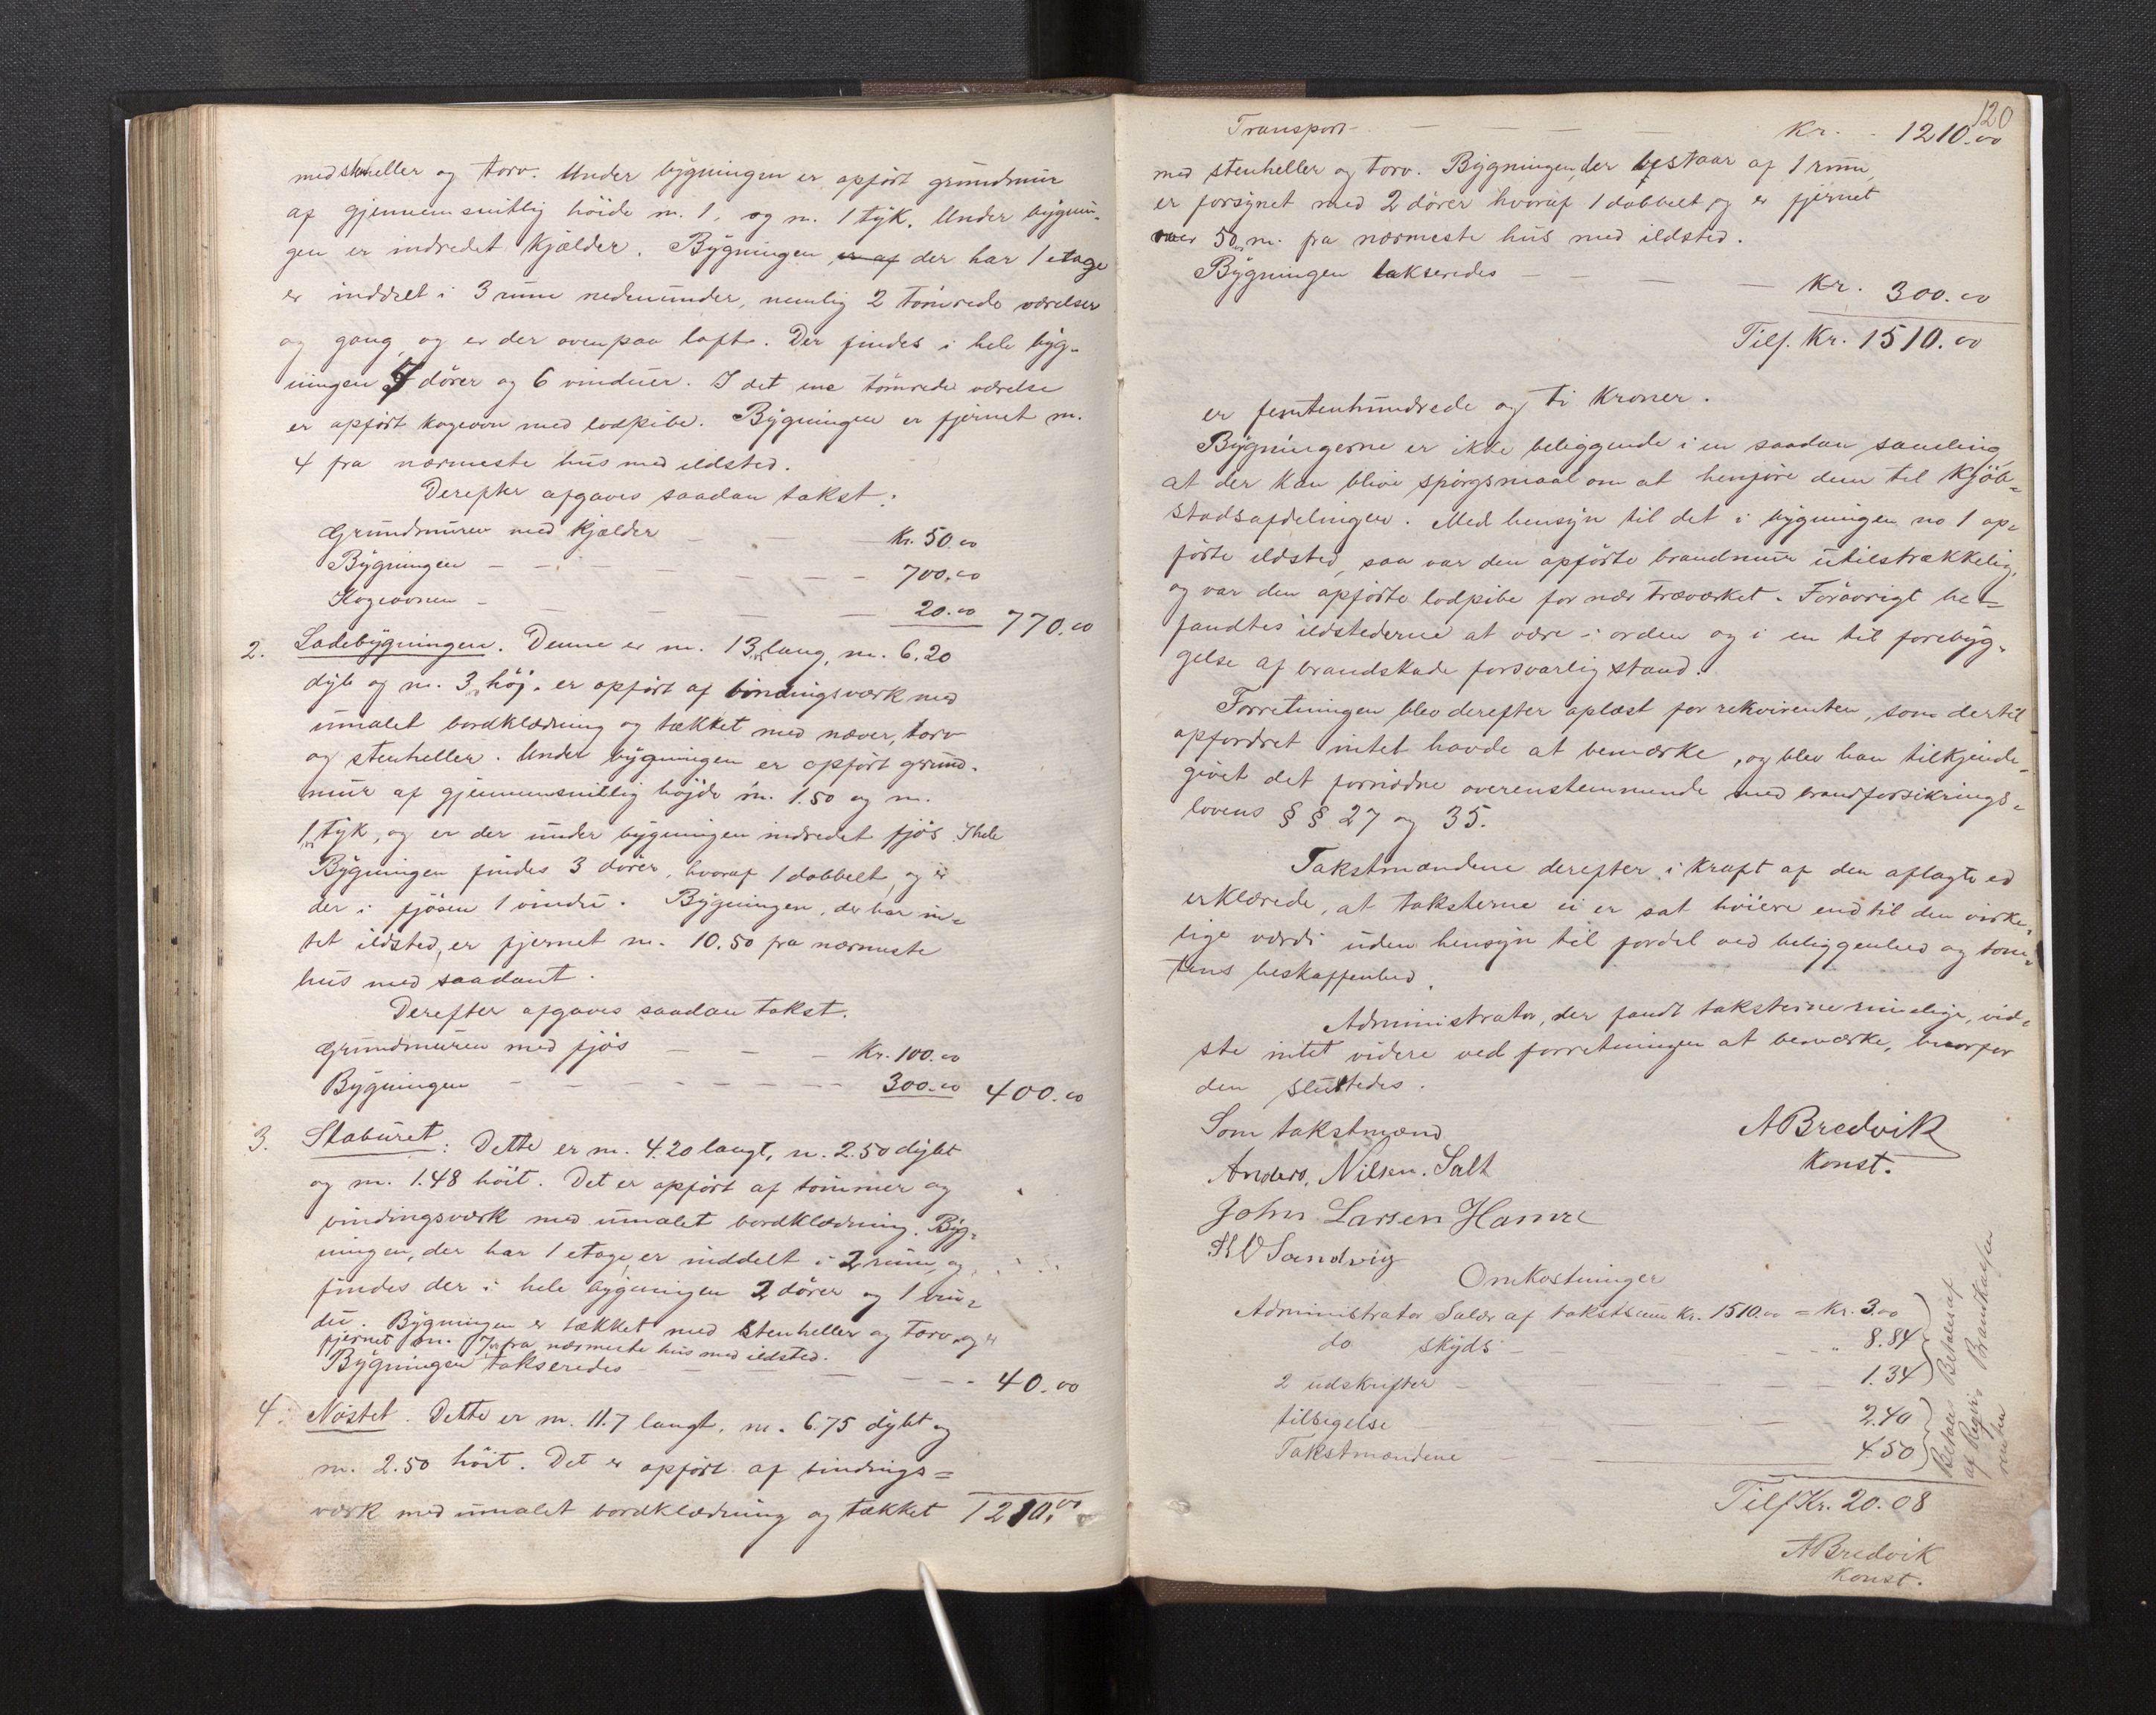 med stenheller og torv. Under bygningen er opført grundmur
af gjennemsnitlig höide m. 1, og m. 1 tyk. Under bygnin-
gen er indredet kjælder. Bygningen, er af der har 1 etage
er inddelt i 3 rum nedenunder, nemlig 2 tömrede værelser
og gang, og er der ovenpaa loft. Der findes i hele byg-
ningen 7 dörer og 6 vinduer. I det ene tömrede værelse
er opført kogeovn med lodpibe. Bygningen er fjernet m.
4 fra nærmeste hus med ildsted.
Derefter afgaves saadan takst:
Grundmuren med kjælder — — Kr. 50.00
Bygningen — — — — — — — 700.00
Kogeovnen — — — — — 20.00 770.00
2. Ladebygningen. Denne er m. 13 lang, m. 6.20
dyb og m. 3 höj. er opført af bindingsværk med
umalet bordklædning og tækket med næver, torv
og stenheller. Under bygningen er opført grund-
mur af gjennemsnitlig höjde m. 1.50 og m.
1 tyk, og er der under bygningen indredet fjös. I hele
Bygningen findes 3 dörer, hvoraf 1 dobbelt, og er
der i fjösen 1 vindu. Bygningen, der har in-
tet ildsted, er fjernet m. 10.50 fra nærmeste
hus med saadant.
Derefter afgaves saadan takst.
Grundmuren med fjös — — — Kr. 100.00
Bygningen — — — — — — — 300.00 400.00
3. Staburet: Dette er m. 4.20 langt, m. 2.50 dybt
og m. 1.48 höit. Det er opført af tömmer og
bindingsværk med umalet bordklædning. Byg-
ningen, der har 1 etage, er inddelt i 2 rum, og
findes der i hele bygningen 2 dörer og 1 vin-
du. Bygningen er tækket med stenheller og torv, og er
fjernet m. 7 fra nærmeste hus med ildsted.
Bygningen takseredes — — — — — 40.00
4. Nöstet. Dette er m. 11.7 langt, m. 6.75 dybt og
m. 2.50 höit. Det er opført af bindings=
værk med umalet bordklædning og tækket 1210.00
120
Transport — — — — Kr. - 1210.00
med stenheller og torv. Bygningen, der bestaar af 1 rum,
er forsynet med 2 dörer hvoraf 1 dobbelt og er fjernet
over 50 m. fra nærmeste hus med ildsted.
Bygningen takseredes — — — — Kr. 300.00
Tils. Kr. 1510.00
er femtenhundrede og ti Kroner.
Bygningerne er ikke beliggende i en saadan samling,
at der kan blive spörgsmaal om at henföre dem til Kjöb=
stadsafdelingen. Med hensyn til det i bygningen no 1 op-
förte ildsted, saa var den opförte brandmur utilstrækkelig,
og var den opförte lodpibe for nær træværket. Forövrigt be=
fandtes ildstederne at være i orden og i en til forebyg-
gelse af brandskade forsvarlig stand.
Forretningen blev derefter oplæst for rekvirenten, som dertil
opfordret intet havde at bemærke, og blev han tilkjende-
givet det fornödne overensstemmende med brandforsikrings=
lovens § § 27 og 35.
Takstmændene derefter i kraft af den aflagte ed
erklærede, at taksterne ei er sat höiere end til den virke-
lige værdi uden hensyn til fordel ved beliggenhed og tom-
tens beskaffenhed.
Administrator, der fandt taksterne rimelige, vid-
ste intet videre ved forretningen at bemærke, hvorfor
den sluttedes.
Som takstmænd
ABredvik
Konst.
Anders. Nilsen. Salt
John Larsen Hamre
Sandvig
Omkostninger
Administrator Salær af takstsum Kr. 1510.00 = Kr. 3.00
do skyds — — — " 8.84
2 udskrifter — — — 1.34
tilsigelse — — 2.40
Takstmændene — — 4.50
Betales af Brandkassen
Betales af Rekvirenten
Tils. Kr. 20.08
ABredvik
Konst.